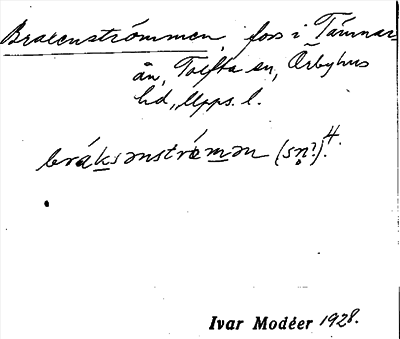 Braxenströmmen, fors i Tämnar-
ån, Tolfta sn, Örbyhus
hd, Upps. l.
bråksənströmən (sn?).4.
Ivar Modéer 1928.